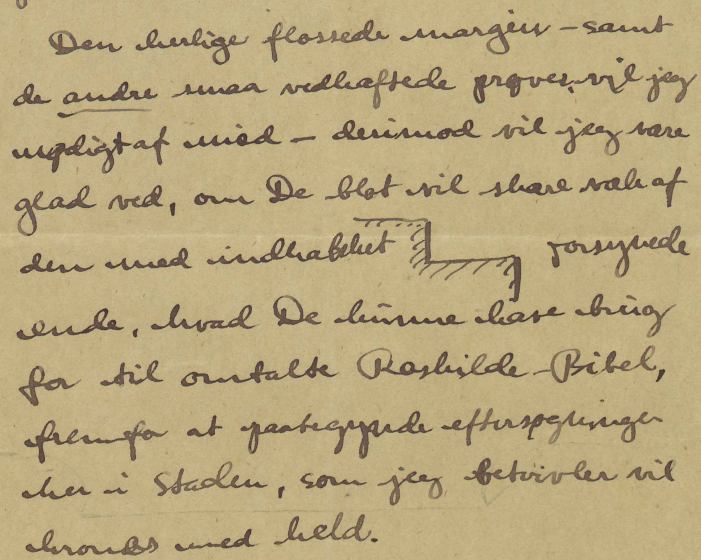 Den herlige flossede margin – samt
de andre smaa vedhæftede prøver vil jeg
nødigt af med – derimod vil jeg være
glad ved, om De blot vil skære væk af
den med indhakket forsynede
ende, hvad De kunne have brug
for til omtalte Roskilde-Bibel,
fremfor at paabegynde eftersøgninger
her i Staden, som jeg betvivler vil
krones med held.